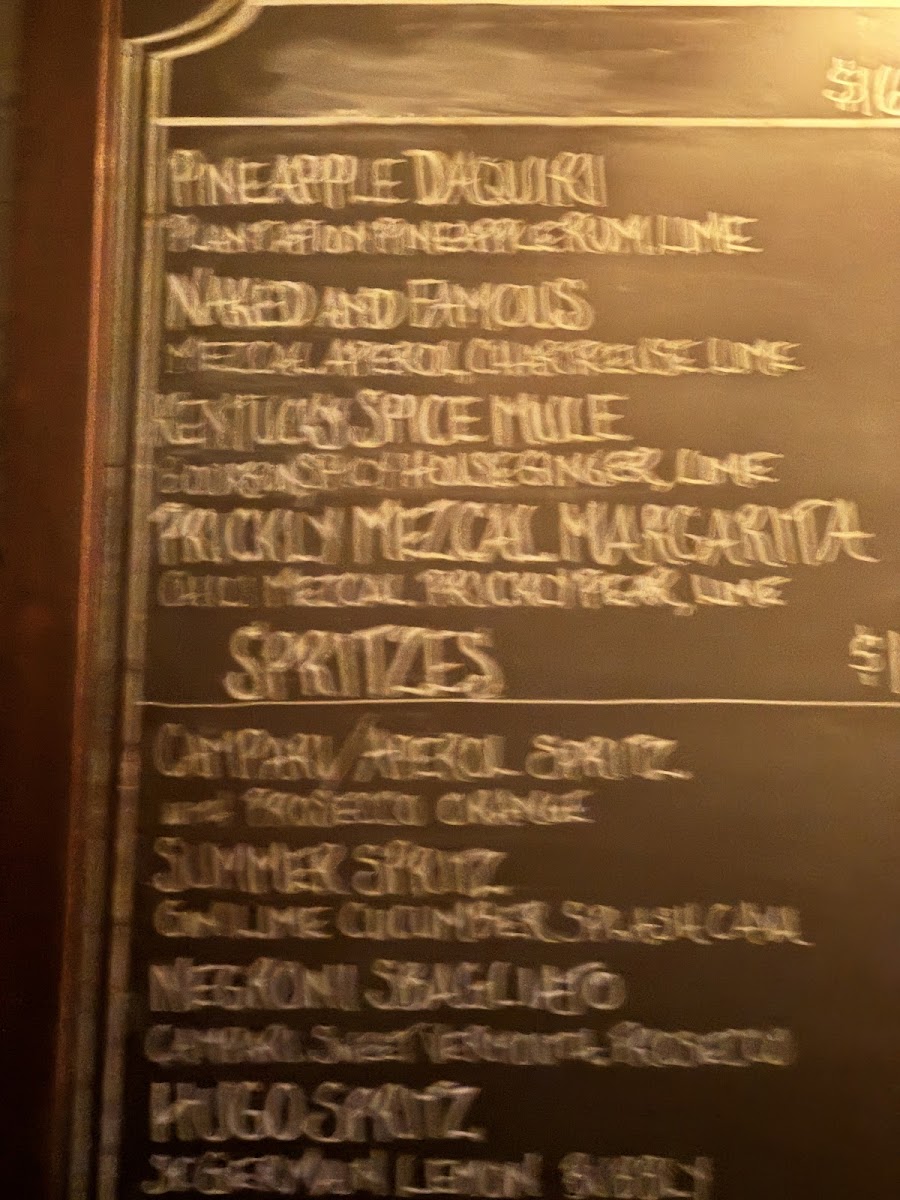 $16
PINEAPPLE DAQUIRI
PLANTATION PINEAPPLE RUM, LIME
NAKED AND FAMOUS
MEZCAL, APEROL, CHARTREUSE, LIME
KENTUCKY SPICE MULE
BOURBON, SPICY HOUSE GINGER, LIME
PRICKLY MEZCAL MARGARITA
MEZCAL, PRICKLY PEAR, LIME
SPRITZES $1
CAMPARI/APEROL SPRITZ
PROSECCO ORANGE
SUMMER SPRITZ
GIN LIME CUCUMBER SPLASH CAVA
NEGRONI SBAGLIATO
CAMPARI, SWEET VERMOUTH, PROSECCO
HUGO SPRITZ
ST GERMAIN LEMON BUBBLY